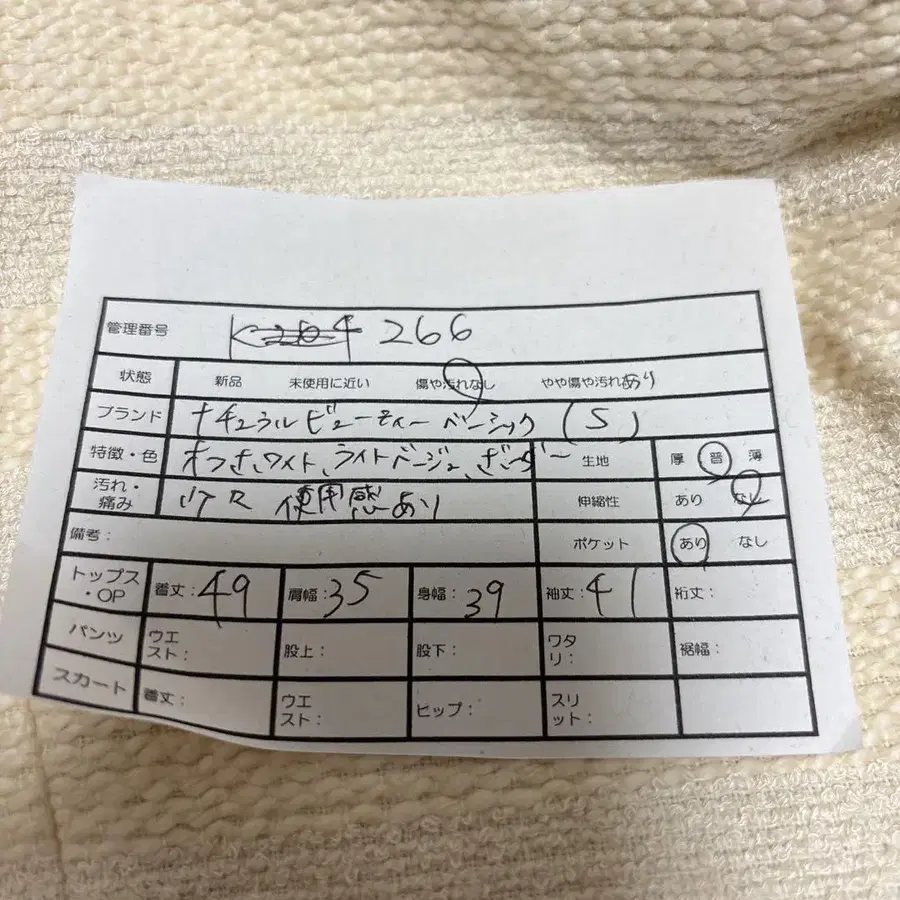 管理番号 266
状態 新品 未使用に近い 傷や汚れなし やや傷や汚れあり
ブランド ナチュラルビューティーベーシック (S)
特徴・色 オフホワイト、ライトベージュ、 生地 厚 普 薄
汚れ・痛み 使用感あり 伸縮性 あり なし
備考: ポケット あり なし
トップス・OP 着丈:49 肩幅:35 身幅:39 袖丈:41 裄丈:
パンツ ウエスト: 股上: 股下: ワタリ: 裾幅:
スカート 着丈: ウエスト: ヒップ: スリット: